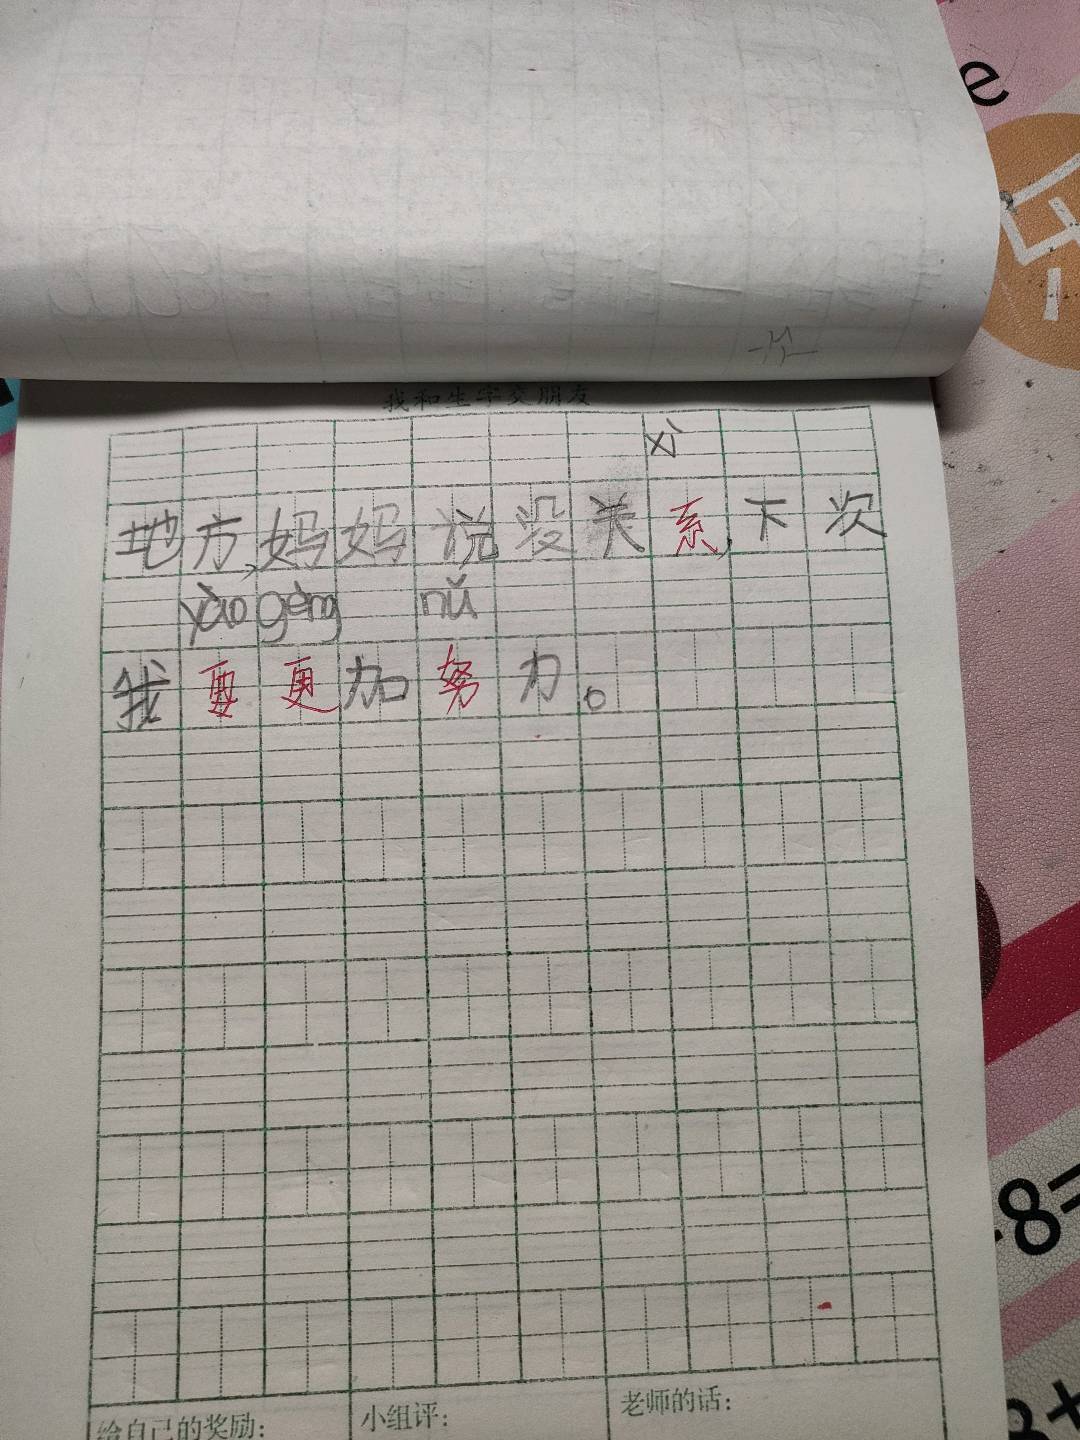 e
我和生字交朋友
xì
地方,妈妈说没关系,下次
yào gèng nǔ
我要更加努力。
8=
8+
给自己的奖励: 小组评: 老师的话: